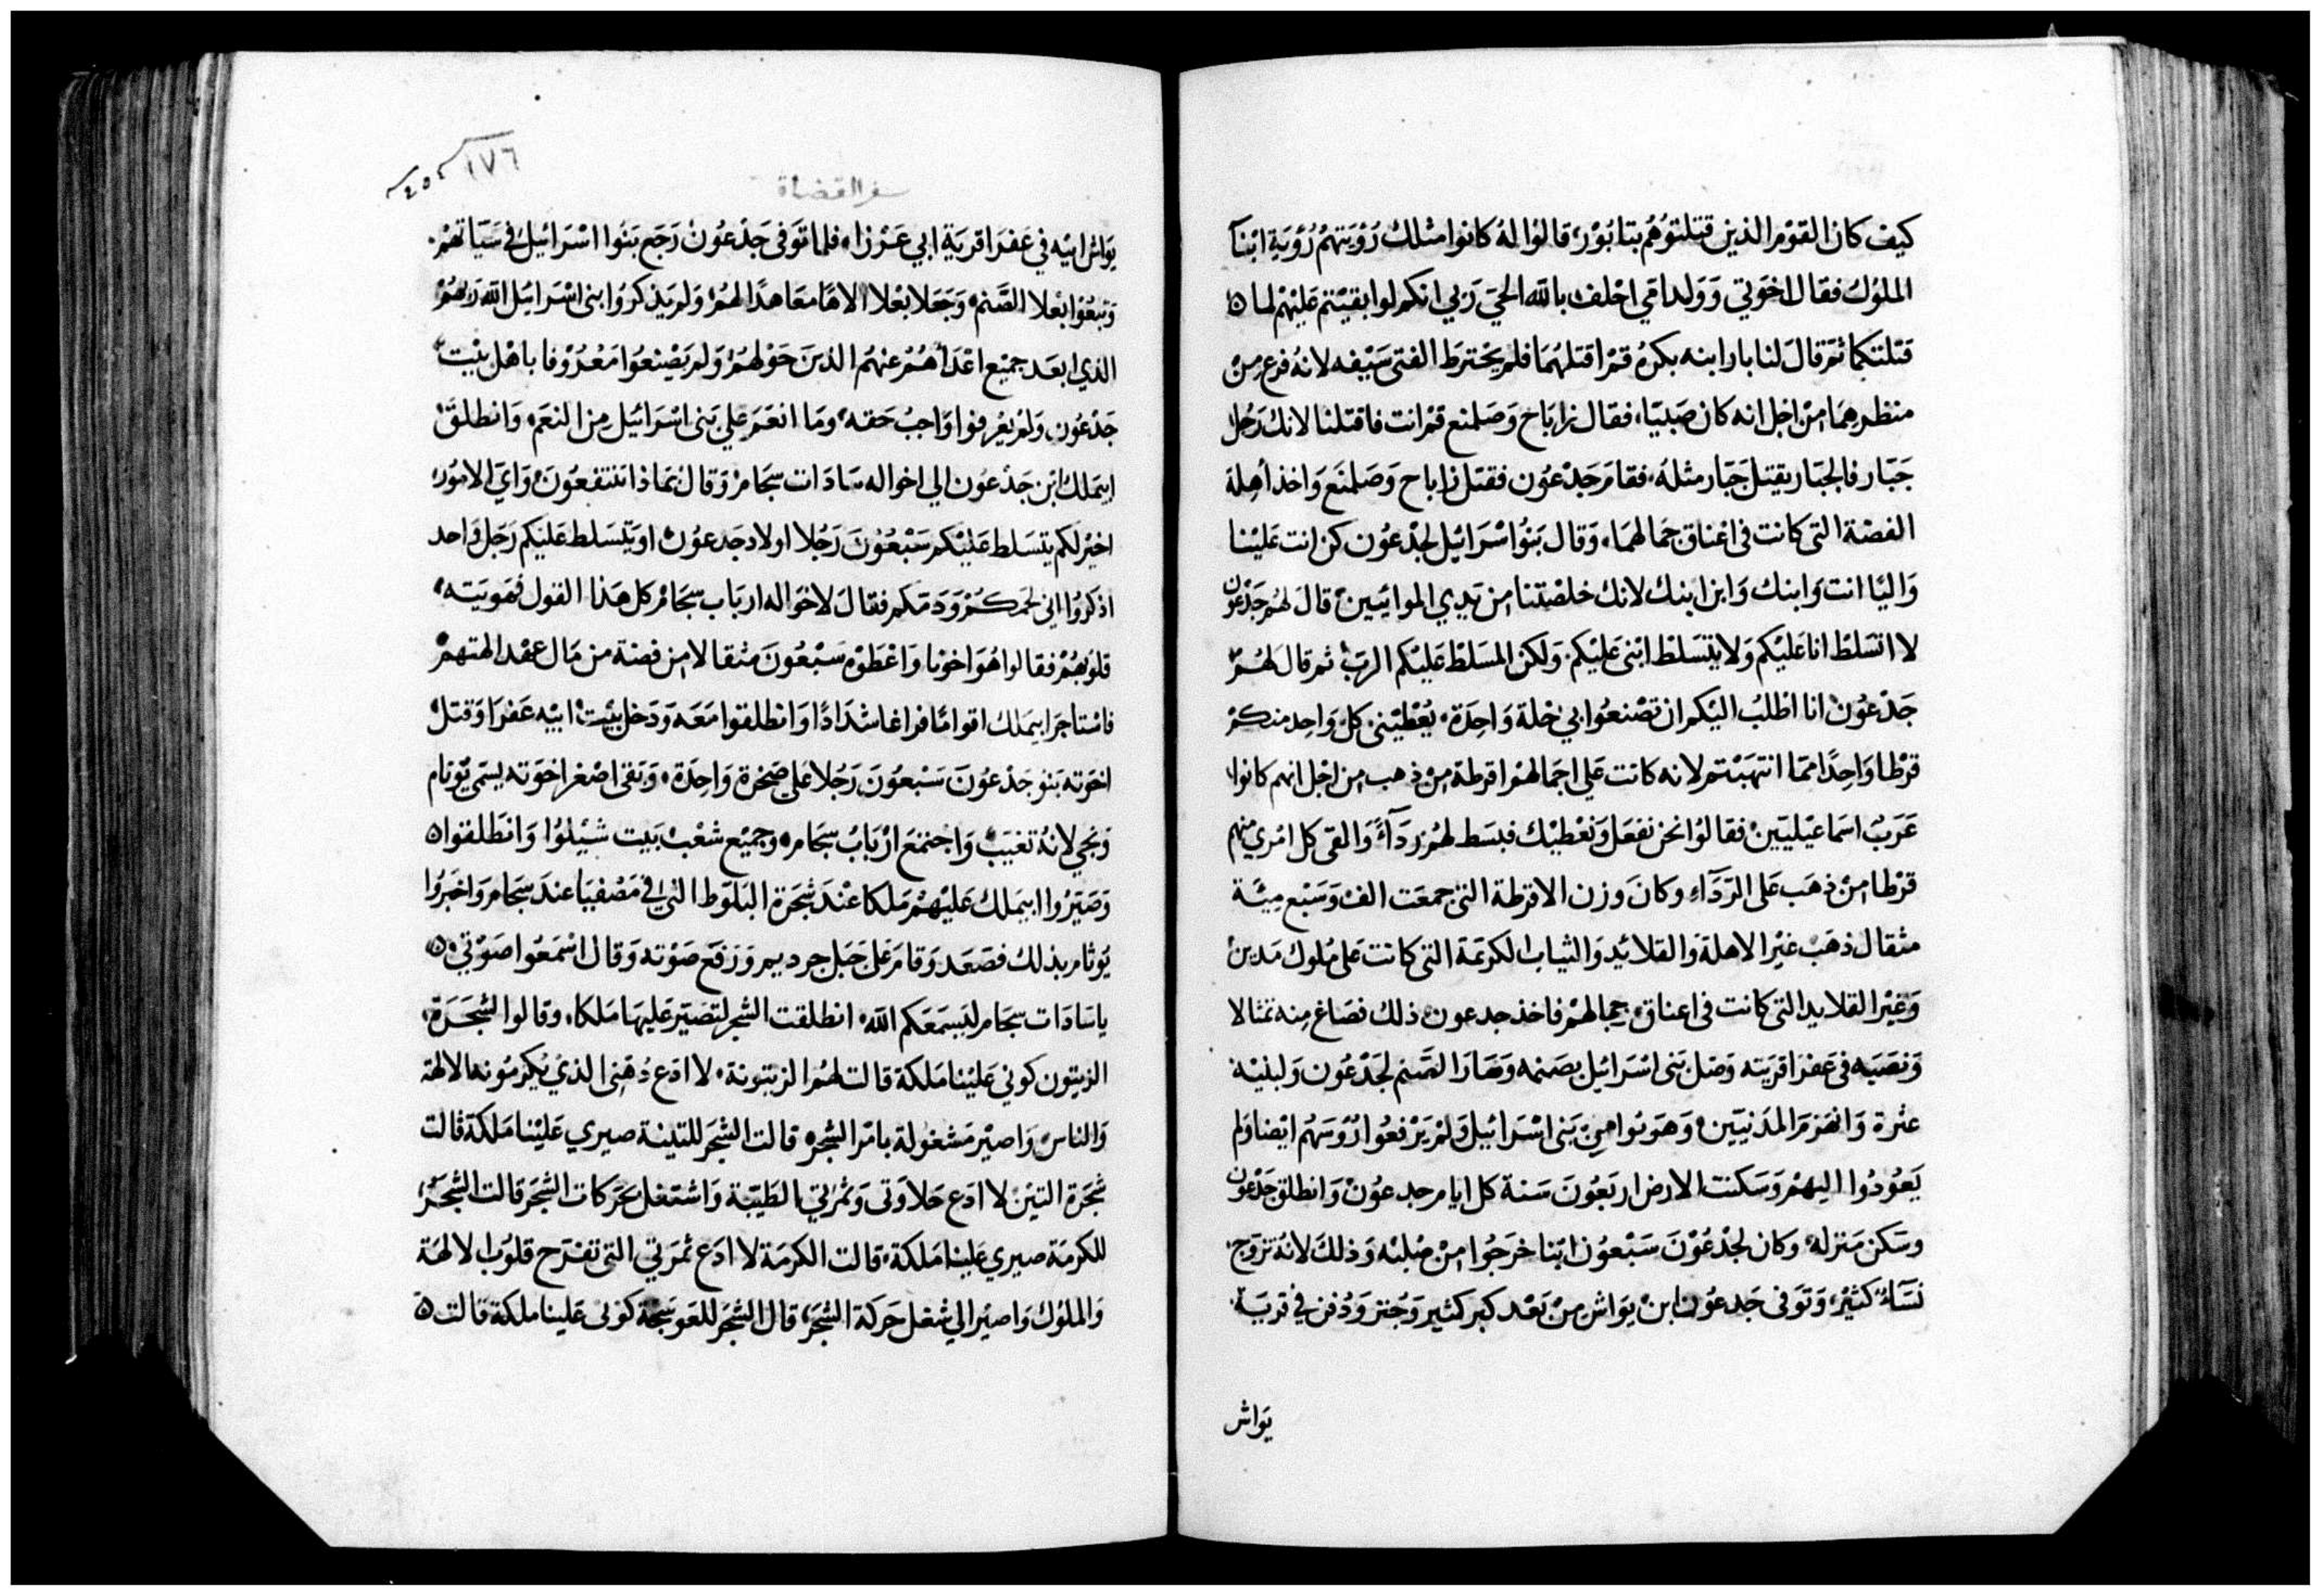 كيف كان القوم الذين قتلتوهم بتابور، قالوا له كانوا مثلك رؤيتهم رؤية ابنآ
الملوك فقال اخوتي وولد امي احلف بالله الحي ربي انكم لو ابقيتم عليهم لما
قتلتكما ثم قال لنابار ابنه بكره قم اقتلهما فلم يخترط الفتى سيفه لانه فزع من
منظرهما من اجل انه كان صبيا، فقال زاباح وصلمنع قم انت فاقتلنا لانك رجل
جبار فالجبار يقتل جبار مثله، فقام جدعون فقتل زاباح وصلمنع واخذ أهلة
الفضة التي كانت في اعناق جمالهما، وقال بنو اسرائيل لجدعون كن انت علينا
واليا انت وابنك وابن ابنك لانك خلصتنا من يدي الموابيين قال لهم جدعون
لا اتسلط انا عليكم ولا يتسلط ابني عليكم، ولكن المسلط عليكم الرب ثم قال لهم
جدعون انا اطلب اليكم ان تصنعوا بي خلة واحدة، يعطيني كل واحد منكم
قرطا واحدا مما انتهبتم لانه كانت علي اجمالهم اقرطة من ذهب من اجل انهم كانوا
عرب اسماعيليين فقالوا نحن نفعل ونعطيك فبسط لهم ردآءً والقى كل امري منهم
قرطا من ذهب على الردآء وكان وزن الاقرطة التي جمعت الف وسبع مية
مثقال ذهب غير الاهلة والقلائد والثياب الكرتمة التي كانت على ملوك مدين
وغير القلايد التي كانت في اعناق جمالهم فاخذ جدعون ذلك فصاغ منه تمثالا
ونصبه في عفرا قريته وضل بني اسرائيل بصنمه وصار الصنم لجدعون ولبنيه
عثرة وانهزم المدنيين وهونوا مِن بني اسرائيل ولم يرفعوا رؤسهم ايضا ولم
يعودوا اليهم وسكنت الارض اربعون سنة كل ايام جدعون وانطلق جدعون
وسكن منزله، وكان لجدعون سبعون ابنا خرجوا من صلبه وذلك لانه تزوج
نسآء كثير، وتوفى جدعون ابن يواش من بعد كبر كثير وجنز ودفن في قرية
يواش
١٧٦
سفر القضاة
يواش ابيه في عفرا قرية ابي عزرا، فلما توفى جدعون رجع بنوا اسرائيل في سياتهم
وتبعوا بعلا الصنم وجعلا بعلا الاها معاهدا لهم ولم يذكروا بني اسرائيل الله ربهم
الذي ابعد جميع اعدآهم عنهم الذين حولهم ولم يصنعوا معروفا باهل بيت
جدعون ولم يعرفوا واجب حقه وما انعم علي بني اسرائيل من النعم، وانطلق
ابيملك ابن جدعون الي اخواله سادات سجام وقال بماذا تنتفعون واي الامور
اخير لكم يتسلط عليكم سبعون رجلا اولاد جدعون او يتسلط عليكم رجل واحد
اذكروا اني لحمكم ودمكم فقال لاخواله ارباب سجام كل هذا القول فهويته
قلوبهم فقالوا هو اخونا واعطوه سبعون مثقالا من فضة من مال عهد الهتهم
فاستاجر ابيملك اقواما فراغا شدادا وانطلقوا معه ودخل بيت ابيه عفرا وقتل
اخوته بنو جدعون سبعون رجلا على صخرة واحدة، وبقى اصغر اخوته يسمى يوتام
ونجي لانه تغيب واجتمع ارباب سجام وجميع شعب بيت شيلوا وانطلقوا
وصيروا ابيملك عليهم ملكا عند شجرة البلوط التي في مصفيا عند سجام واخبروا
يوثام بذلك فصعد وقام على جبل جرديم ورفع صوته وقال اسمعوا صوتي
ياسادات سجام ليسمعكم الله، انطلقت الشجر لتصير عليها ملكا، وقالوا لشجرة
الزيتون كوني علينا ملكة قالت لهم الزيتونة، لا ادع دهني الذي يكرمونه الالهة
والناس واصير مشغولة بامر الشجر، قالت الشجر للتينة صيري علينا ملكة قالت
شجرة التين لا ادع حلاوتى وثمرتي الطيبة واشتغل بحركات الشجر قالت الشجر
للكرمة صيري علينا ملكة، قالت الكرمة لا ادع ثمرتي التي تفرح قلوب الالهة
والملوك واصير الي شغل حركة الشجر، قال الشجر للعوسجة كونى علينا ملكة قالت